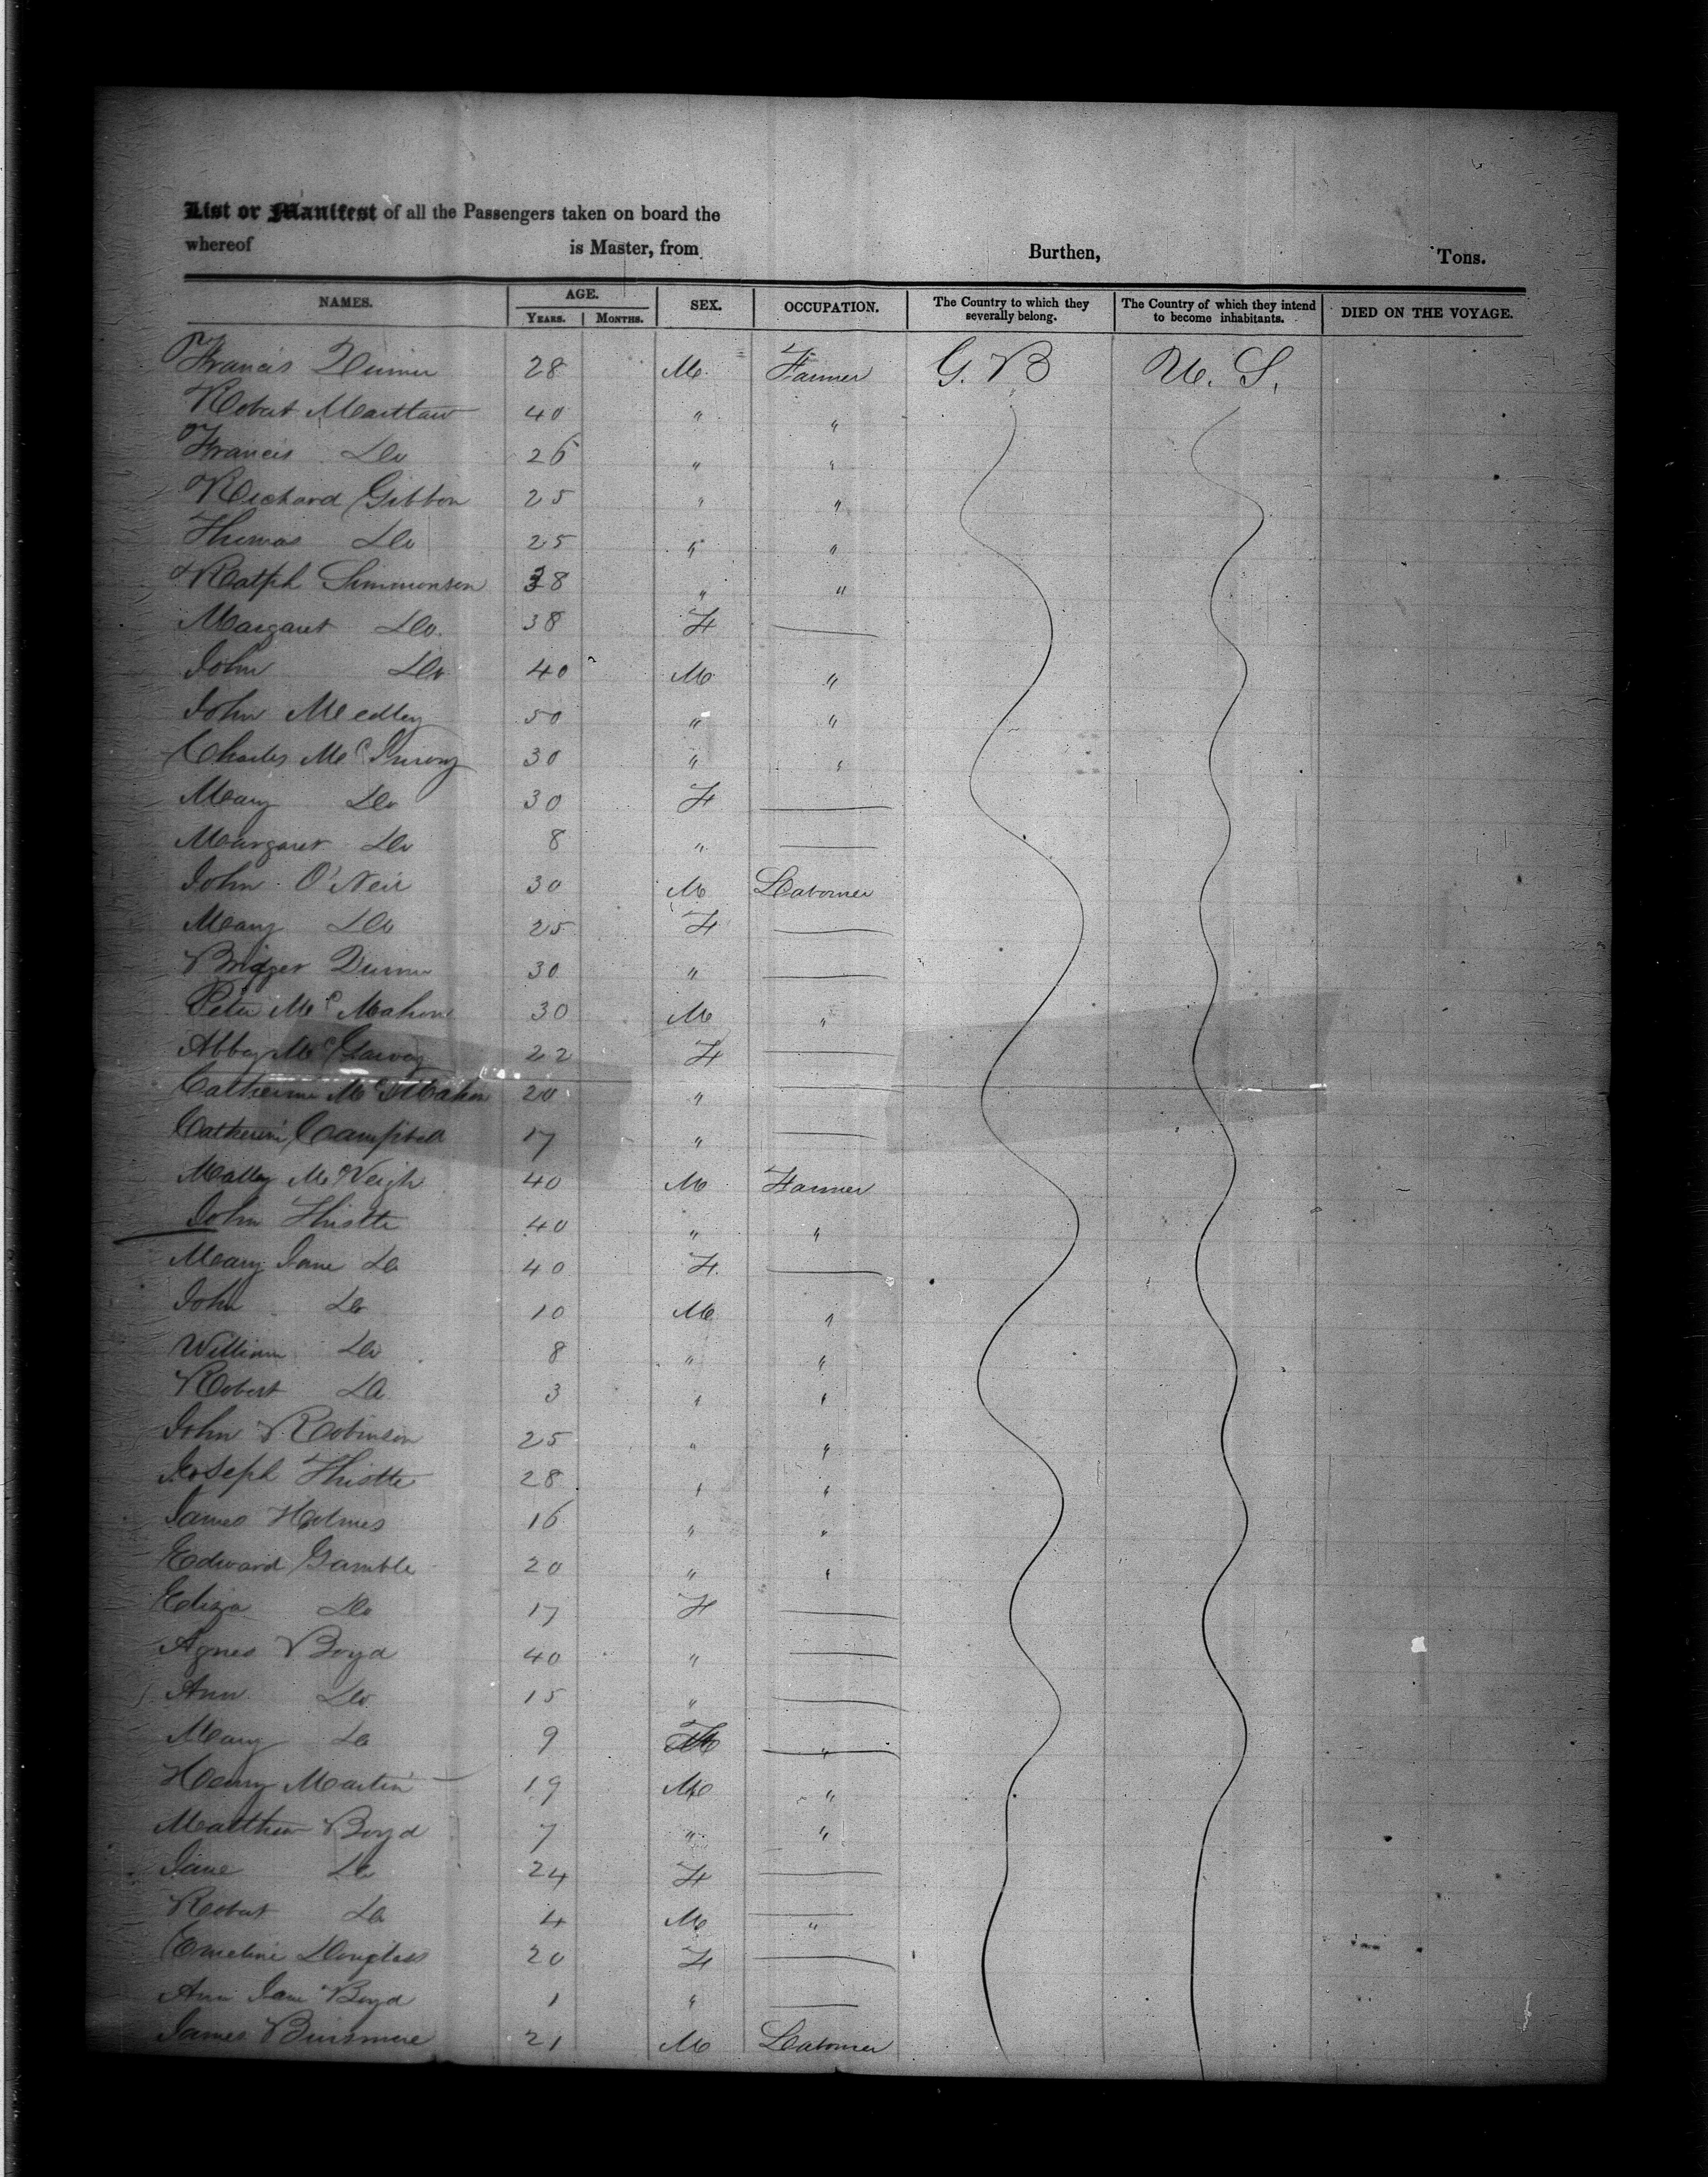 List or Manifest of all the Passengers taken on board the
whereof is Master, from Burthen, Tons.
NAMES. AGE. SEX. OCCUPATION. The Country to which they severally belong. The Country of which they intend to become inhabitants. DIED ON THE VOYAGE.
YEARS. MONTHS.
Francis 28 M Farmer G. B U. S.
Robert 40 " "
Francis Do 26 " "
Richard Gibbon 25 " "
Thomas Do 25 " "
Ralph Simmonson 38 " "
Margaret Do. 38 F
John Do 40 M "
John Medley 50 " "
Charles 30 " "
Mary Do 30 F
Margaret Do 8 "
John O'Neil 30 M Labourer
Mary Do 25 F
Bridget 30 "
Peter McMahon 30 M "
Abby 22 F
Catherine McMahon 20 "
Catherine Campbell 17 "
McVeigh 40 M Farmer
John Thistle 40 " "
Mary Jane Do 40 F.
John Do 10 M "
William Do 8 " "
Robert Do 3 " "
John Robinson 25 " "
Joseph Thistle 28 " "
James Holmes 16 " "
Edward Gamble 20 " "
Eliza Do 17 F
Agnes Boyd 40 "
Ann Do 15 "
Mary Do 9 "
Henry Martin 19 M "
Matthew Boyd 7 " "
Jane Do 24 F
Robert Do 4 M "
Emeline Douglass 20 F
Ann Jane Boyd 1 "
James 21 M Labourer